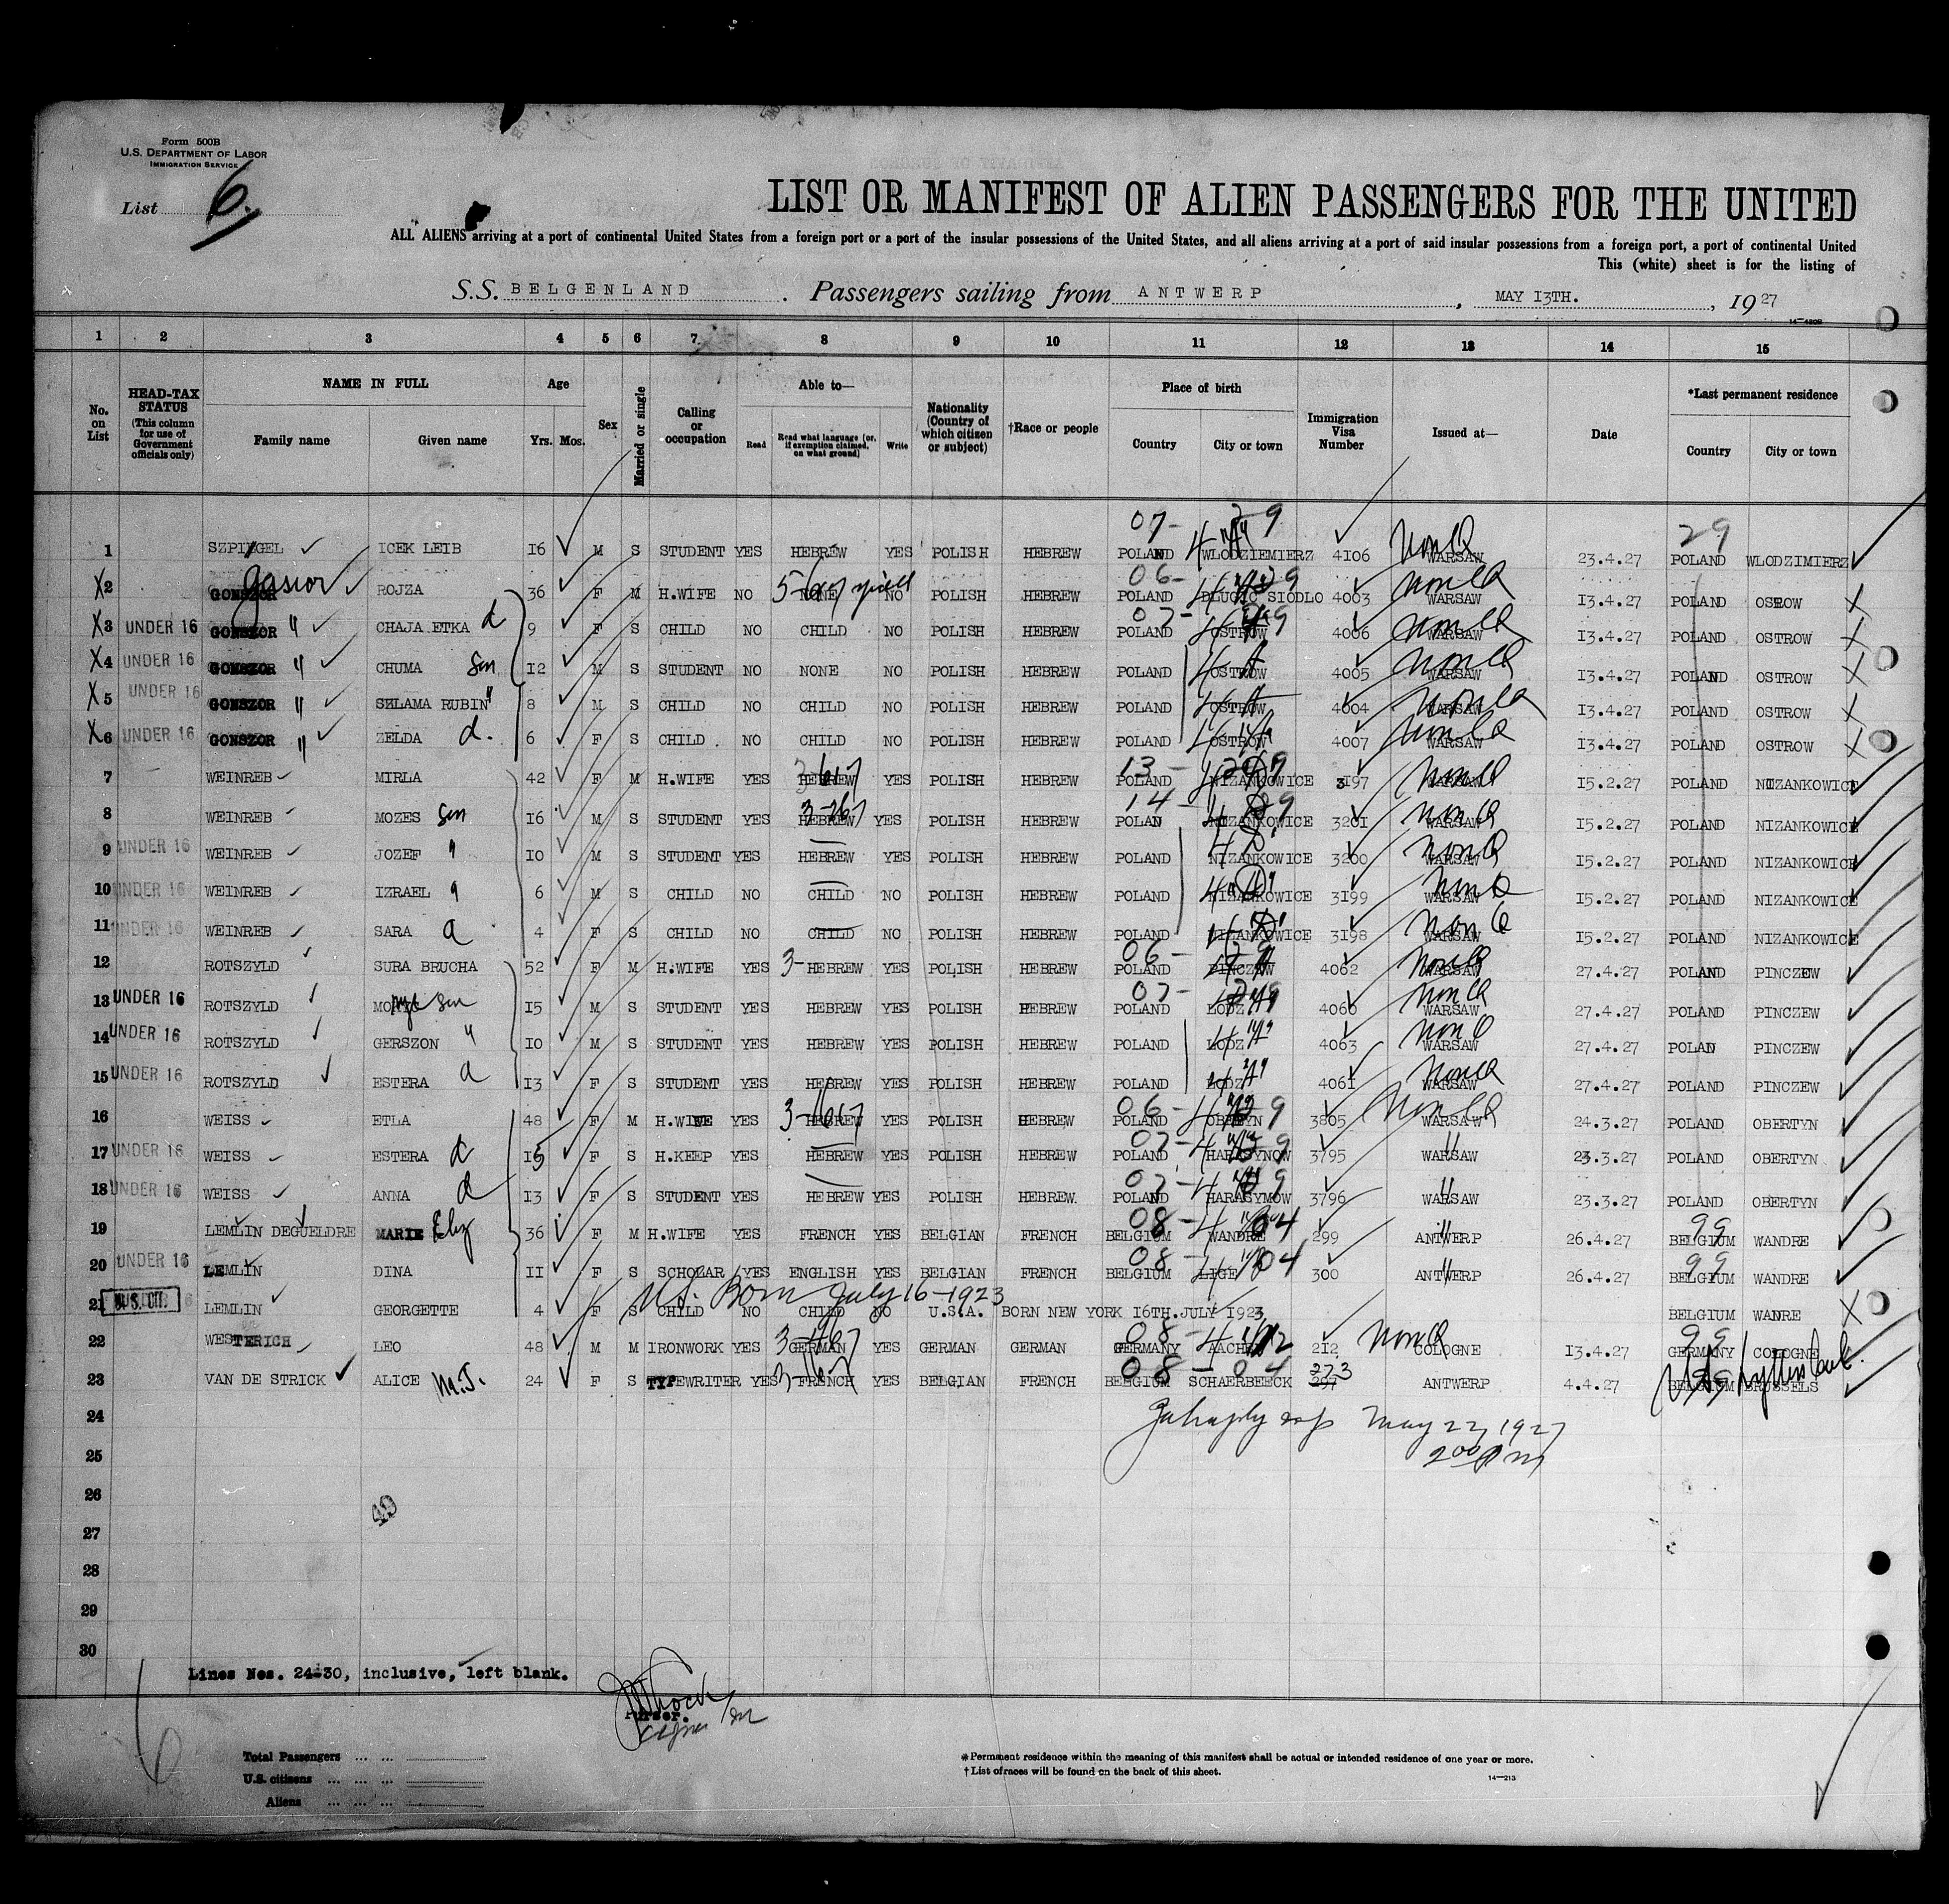 Form 500B
U.S. DEPARTMENT OF LABOR
IMMIGRATION SERVICE
List 6.
LIST OR MANIFEST OF ALIEN PASSENGERS FOR THE UNITED
ALL ALIENS arriving at a port of continental United States from a foreign port or a port of the insular possessions of the United States, and all aliens arriving at a port of said insular possessions from a foreign port, a port of continental United
This (white) sheet is for the listing of
S.S. BELGENLAND . Passengers sailing from ANTWERP , MAY 13TH. , 1927
14—430B
1 2 3 4 5 6 7 8 9 10 11 12 13 14 15
No. on List HEAD-TAX STATUS (This column for use of Government officials only) NAME IN FULL Family name Given name Age Yrs. Mos. Sex Married or single Calling or occupation Able to— Read Read what language (or, if exemption claimed, on what ground) Write Nationality (Country of which citizen or subject) †Race or people Place of birth Country City or town Immigration Visa Number Issued at— Date *Last permanent residence Country City or town
07- 29 29
1 SZPIEGEL ICEK LEIB 16 M S STUDENT YES HEBREW YES POLISH HEBREW POLAND WLODZIEMIERZ 4106 WARSAW 23.4.27 POLAND WLODZIMIERZ
X2 GONSZOR Gasior ROJZA 36 F M H.WIFE NO NONE NO POLISH HEBREW POLAND DLUGIC SIODLO 4003 WARSAW 13.4.27 POLAND OSROW
X3 UNDER 16 GONSZOR " CHAJA ETKA d 9 F S CHILD NO CHILD NO POLISH HEBREW POLAND OSTROW 4006 WARSAW 13.4.27 POLAND OSTROW
X4 UNDER 16 GONSZOR " CHUMA Son 12 M S STUDENT NO NONE NO POLISH HEBREW POLAND OSTROW 4005 WARSAW 13.4.27 POLAND OSTROW
X5 UNDER 16 GONSZOR " SZLAMA RUBIN " 8 M S CHILD NO CHILD NO POLISH HEBREW POLAND OSTROW 4004 WARSAW 13.4.27 POLAND OSTROW
X6 UNDER 16 GONSZOR " ZELDA d. 6 F S CHILD NO CHILD NO POLISH HEBREW POLAND OSTROW 4007 WARSAW 13.4.27 POLAND OSTROW
7 WEINREB MIRLA 42 F M H.WIFE YES HEBREW YES POLISH HEBREW POLAND NIZANKOWICE 3197 WARSAW 15.2.27 POLAND NIZANKOWICE
8 WEINREB MOZES Son 16 M S STUDENT YES HEBREW YES POLISH HEBREW POLAN NIZANKOWICE 3201 WARSAW 15.2.27 POLAND NIZANKOWICE
9 UNDER 16 WEINREB JOZEF " 10 M S STUDENT YES HEBREW YES POLISH HEBREW POLAND NIZANKOWICE 3200 WARSAW 15.2.27 POLAND NIZANKOWICE
10 UNDER 16 WEINREB IZRAEL " 6 M S CHILD NO CHILD NO POLISH HEBREW POLAND NIZANKOWICE 3199 WARSAW 15.2.27 POLAND NIZANKOWICE
11 UNDER 16 WEINREB SARA d 4 F S CHILD NO CHILD NO POLISH HEBREW POLAND NIZANKOWICE 3198 WARSAW 15.2.27 POLAND NIZANKOWICE
12 ROTSZYLD SURA BRUCHA 52 F M H.WIFE YES HEBREW YES POLISH HEBREW POLAND PINCZOW 4062 WARSAW 27.4.27 POLAND PINCZEW
13 UNDER 16 ROTSZYLD son 15 M S STUDENT YES HEBREW YES POLISH HEBREW POLAND LODZ 4060 WARSAW 27.4.27 POLAND PINCZEW
14 UNDER 16 ROTSZYLD GERSZON " 10 M S STUDENT YES HEBREW YES POLISH HEBREW POLAND LODZ 4063 WARSAW 27.4.27 POLAN PINCZEW
15 UNDER 16 ROTSZYLD ESTERA d 13 F S STUDENT YES HEBREW YES POLISH HEBREW POLAND LODZ 4061 WARSAW 27.4.27 POLAND PINCZEW
16 WEISS ETLA 48 F M H.WIFE YES HEBREW YES POLISH HEBREW POLAND OBERTYN 3805 WARSAW 24.3.27 POLAND OBERTYN
17 UNDER 16 WEISS ESTERA d 15 F S H.KEEP YES HEBREW YES POLISH HEBREW POLAND HARASYNOW 3795 WARSAW 23.3.27 POLAND OBERTYN
18 UNDER 16 WEISS ANNA d 13 F S STUDENT YES HEBREW YES POLISH HEBREW. POLAND HARASYMOW 3796 WARSAW 23.3.27 POLAND OBERTYN
19 LEMLIN DEGUELDRE MARIE Eliz 36 F M H.WIFE YES FRENCH YES BELGIAN FRENCH BELGIUM WANDRE 299 ANTWERP 26.4.27 BELGIUM WANDRE
20 UNDER 16 LEMLIN DINA 11 F S SCHOLAR YES ENGLISH YES BELGIAN FRENCH BELGIUM LIGE 300 ANTWERP 26.4.27 BELGIUM WANDRE
U.S. Born July 16-1923
21 U.S. CIT. LEMLIN GEORGETTE 4 F S CHILD NO CHILD NO U.S.A. BORN NEW YORK 16TH.JULY 1923 BELGIUM WANDRE
22 WESTERICH LEO 48 M M IRONWORK YES GERMAN YES GERMAN GERMAN GERMANY AACHEN 212 COLOGNE 13.4.27 GERMANY COLOGNE
23 VAN DE STRICK ALICE M.J. 24 F S TYPEWRITER YES FRENCH YES BELGIAN FRENCH BELGIUM SCHAERBEECK 297 373 ANTWERP 4.4.27 BELGIUM BRUSSELS
24
May 22, 1927
25
2 00 PM
26
27
28
29
30
Lines Nos. 24-30, inclusive, left blank.
Purser.
Total Passengers
U.S. citizens
Aliens
*Permanent residence within the meaning of this manifest shall be actual or intended residence of one year or more.
†List of races will be found on the back of this sheet.
14—213